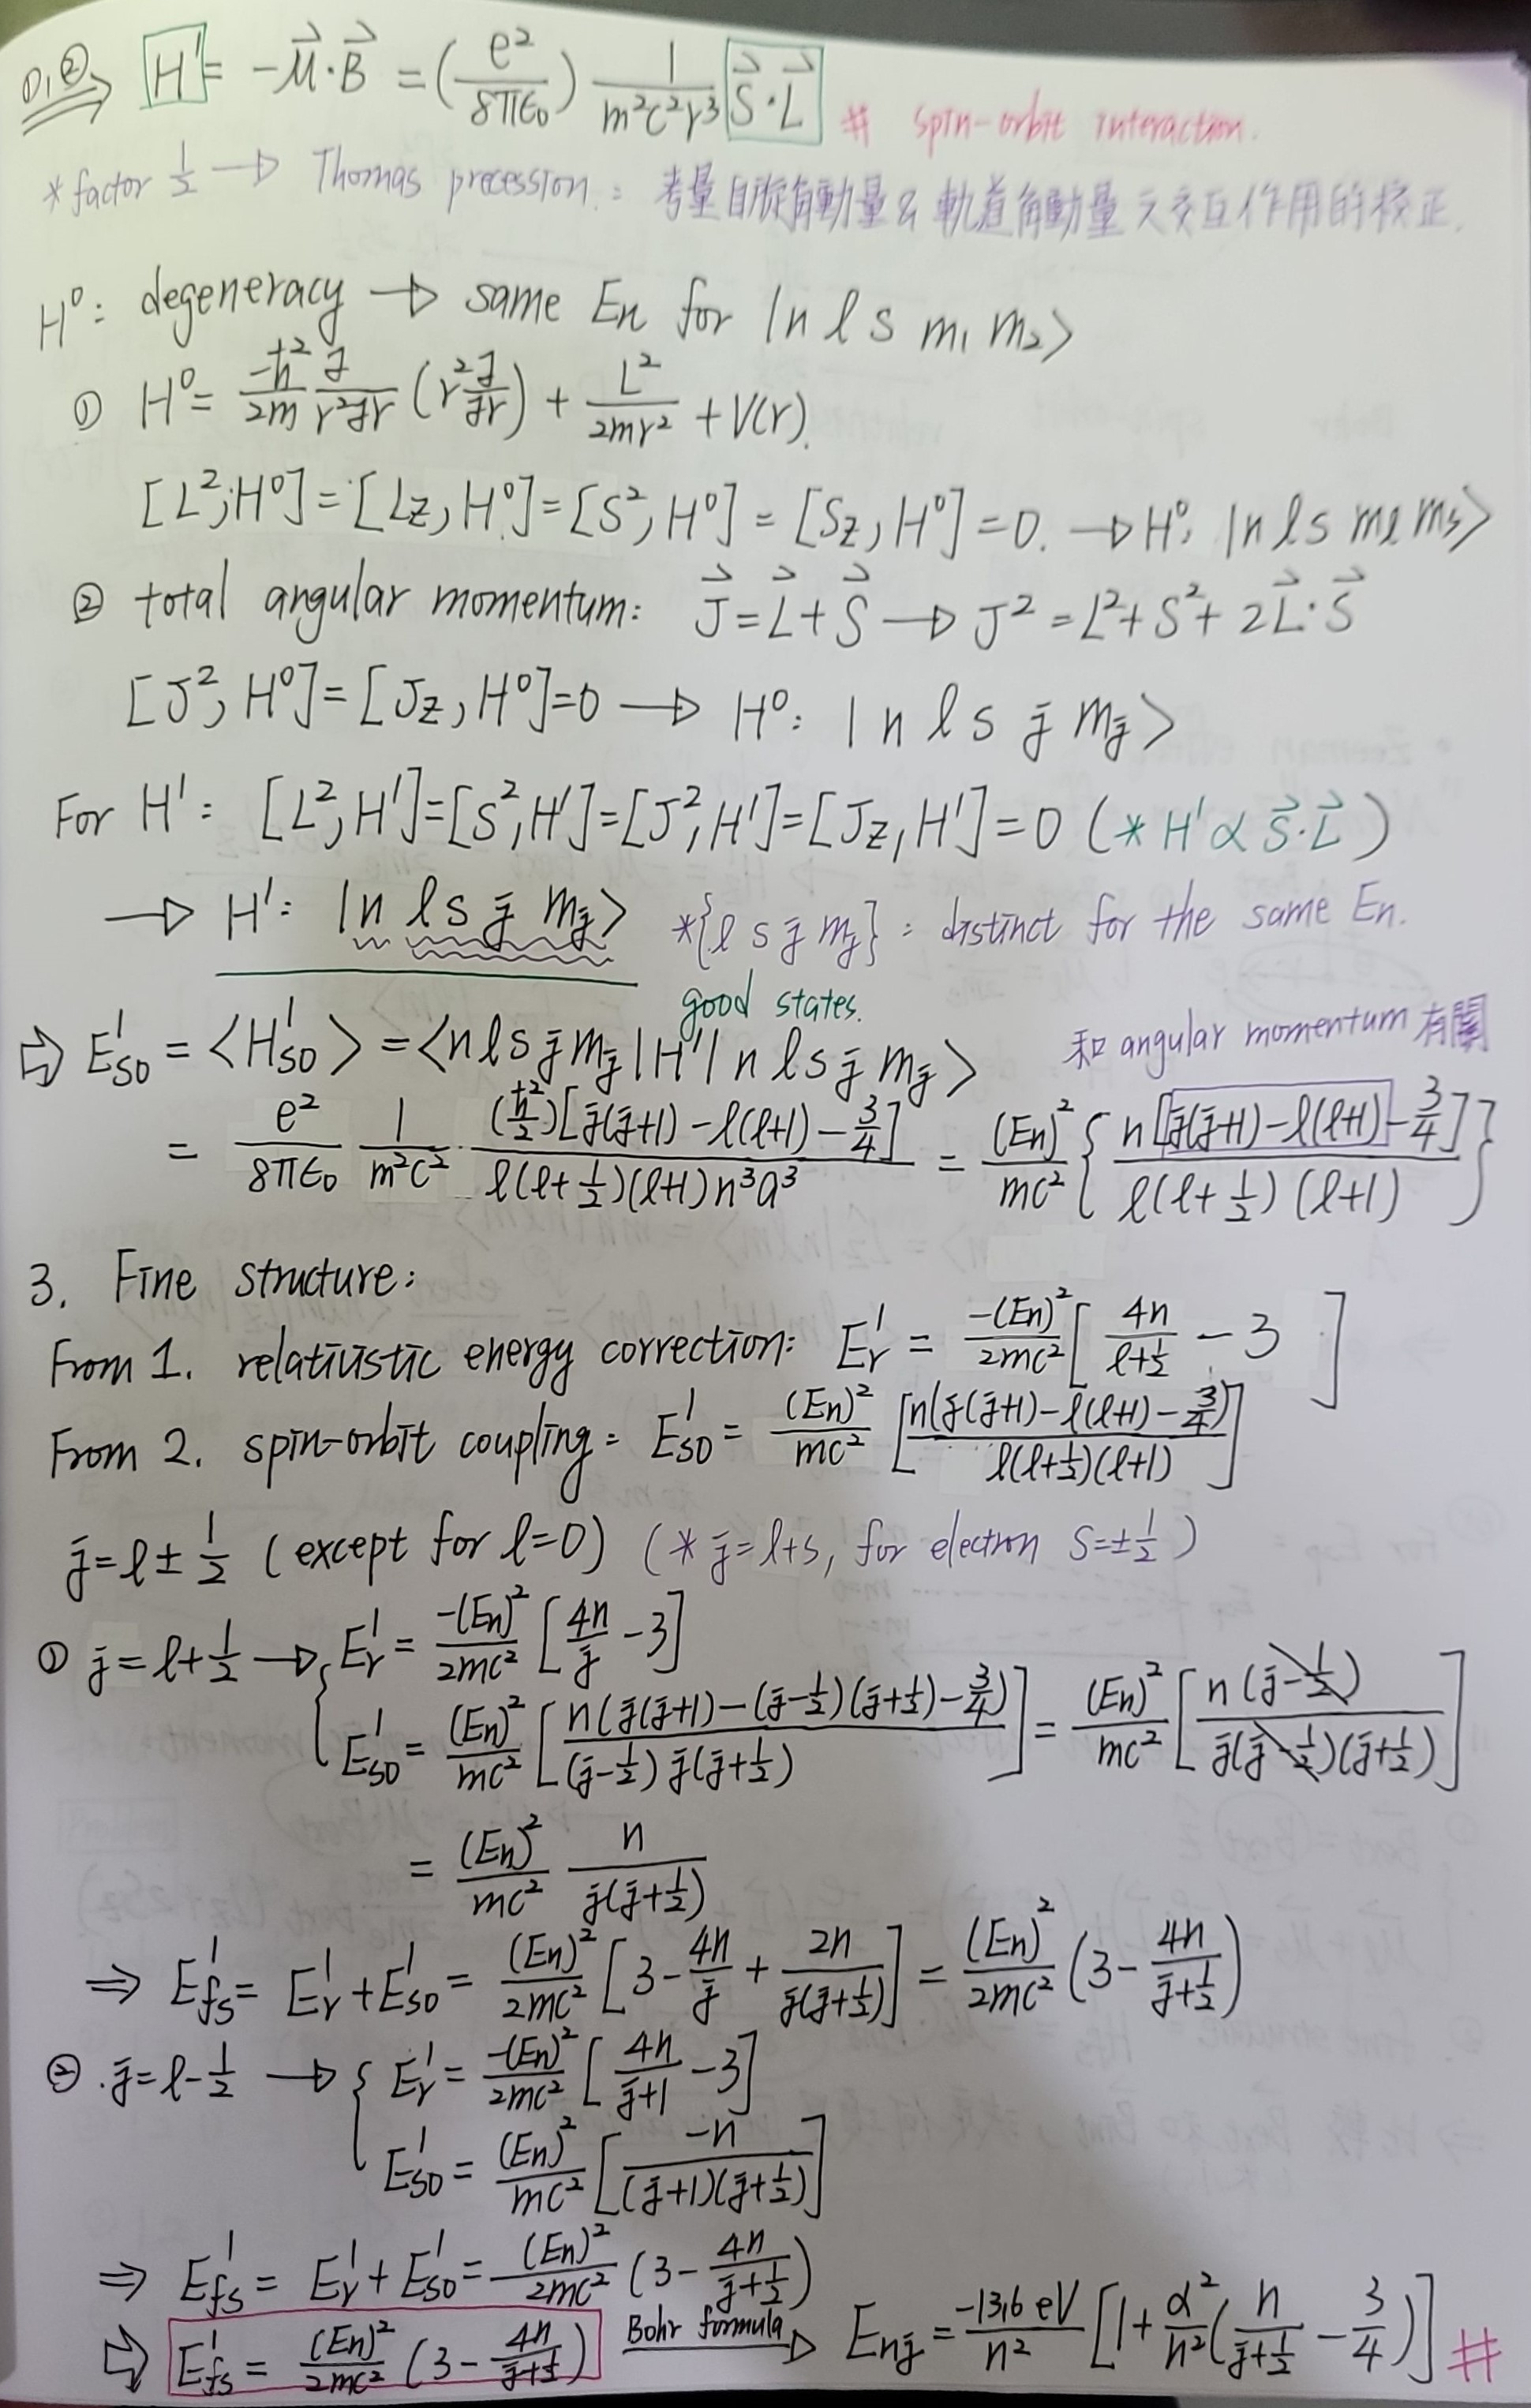 0,② → H' = -μ⃗·B⃗ = (e²/8πε₀) 1/m²c²r³ S⃗·L⃗ # spin-orbit interaction.
*factor 1/2 → Thomas precession.: 考量自旋角動量&軌道角動量之交互作用的校正.
H⁰: degeneracy → same En for |n l s m₁ m₂>
① H⁰ = -ħ²/2m ∂/r²∂r (r² ∂/∂r) + L²/2mr² + V(r).
[L², H⁰] = [Lz, H⁰] = [S², H⁰] = [Sz, H⁰] = 0. → H⁰: |n l s ml ms>
② total angular momentum: J⃗ = L⃗ + S⃗ → J² = L² + S² + 2L⃗·S⃗
[J², H⁰] = [Jz, H⁰] = 0 → H⁰: |n l s j mj>
For H': [L², H'] = [S², H'] = [J², H'] = [Jz, H'] = 0 (* H' ∝ S⃗·L⃗)
→ H': |n l s j mj> *{l s j mj}: distinct for the same En.
good states.
⇒ E¹so = <H'so> = <n l s j mj|H'|n l s j mj> 和 angular momentum 有關
= e²/8πε₀ 1/m²c² · (ħ²/2)[j(j+1) - l(l+1) - 3/4] / l(l+1/2)(l+1)n³a³ = (En)²/mc² { n[j(j+1) - l(l+1) - 3/4] / l(l+1/2)(l+1) }
3. Fine structure:
From 1. relativistic energy correction: E¹r = -(En)²/2mc² [4n/l+1/2 - 3]
From 2. spin-orbit coupling: E¹so = (En)²/mc² [n(j(j+1) - l(l+1) - 3/4) / l(l+1/2)(l+1)]
j = l ± 1/2 (except for l=0) (* j=l+s, for electron S=±1/2)
① j = l + 1/2 → { E¹r = -(En)²/2mc² [4n/j - 3]
E¹so = (En)²/mc² [n(j(j+1) - (j-1/2)(j+1/2) - 3/4) / (j-1/2)j(j+1/2)] = (En)²/mc² [n(j-1/2) / j(j-1/2)(j+1/2)]
= (En)²/mc² n/j(j+1/2)
⇒ E¹fs = E¹r + E¹so = (En)²/2mc² [3 - 4n/j + 2n/j(j+1/2)] = (En)²/2mc² (3 - 4n/j+1/2)
② j = l - 1/2 → { E¹r = -(En)²/2mc² [4n/j+1 - 3]
E¹so = (En)²/mc² [-n/(j+1)(j+1/2)]
⇒ E¹fs = E¹r + E¹so = (En)²/2mc² (3 - 4n/j+1/2)
⇒ E¹fs = (En)²/2mc² (3 - 4n/j+1/2) Bohr formula → Enj = -13.6 eV/n² [1 + α²/n² (n/j+1/2 - 3/4)] #